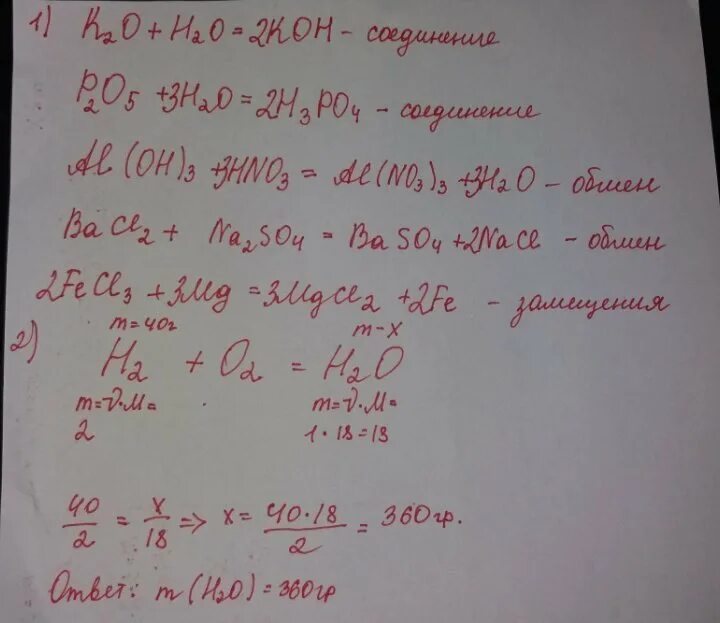 1) K₂O + H₂O = 2KOH – соединение
P₂O₅ + 3H₂O = 2H₃PO₄ – соединение
Al(OH)₃ + 3HNO₃ = Al(NO₃)₃ + 3H₂O – обмен
BaCl₂ + Na₂SO₄ = BaSO₄ + 2NaCl – обмен
2FeCl₃ + 3Mg = 3MgCl₂ + 2Fe – замещения
m=40г m–x
2) H₂ + O₂ = H₂O
m=ν·M= m=ν·M=
2 1·18=18
40/2 = x/18 => x = 40·18/2 = 360гр.
Ответ: m(H₂O) = 360гр